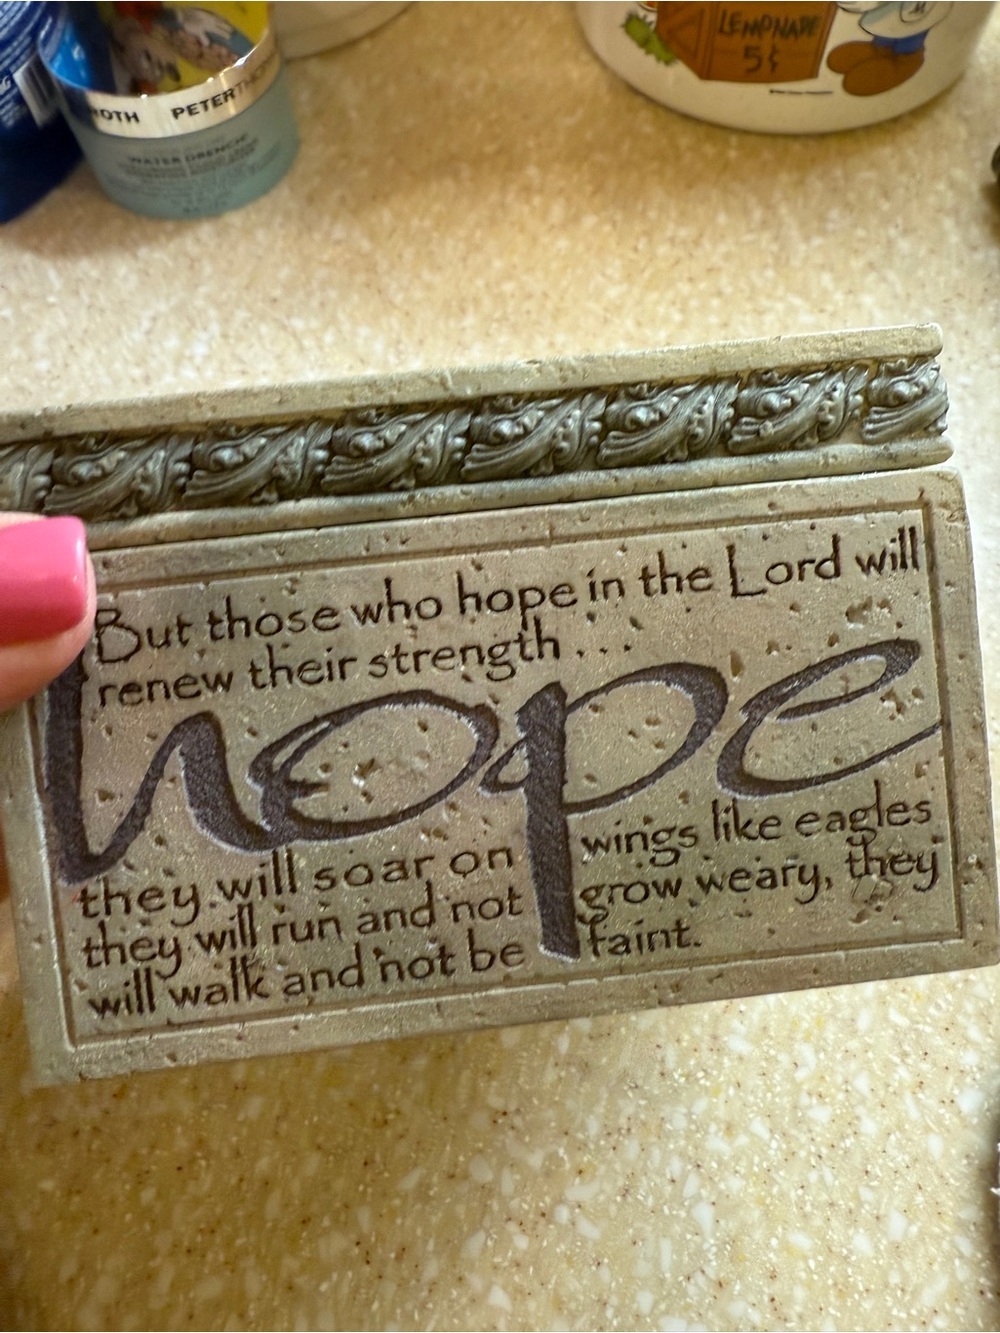 LEMONADE
5¢
ROTH PETERTH
WATER DRENCH
But those who hope in the Lord will
renew their strength...
hope
they will soar on wings like eagles
they will run and not grow weary, they
will walk and not be faint.